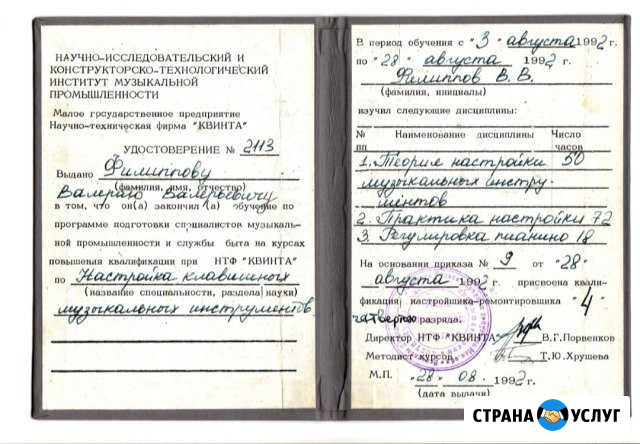 НАУЧНО-ИССЛЕДОВАТЕЛЬСКИЙ И
КОНСТРУКТОРСКО-ТЕХНОЛОГИЧЕСКИЙ
ИНСТИТУТ МУЗЫКАЛЬНОЙ
ПРОМЫШЛЕННОСТИ
Малое государственное предприятие
Научно-техническая фирма "КВИНТА"
УДОСТОВЕРЕНИЕ № 2113
Выдано Филиппову
(фамилия, имя, отчество)
Валерию Валерьевичу
в том, что он(а) закончил (а) обучение по
программе подготовки специалистов музыкаль-
ной промышленности и службы быта на курсах
повышения квалификации при НТФ "КВИНТА"
по Настройка клавишных
(название специальности, раздела науки)
музыкальных инструментов
В период обучения с "3" августа 1992 г.
по "28" августа 1992 г.
Филиппов В. В.
(фамилия, инициалы)
изучил следующие дисциплины:
№ пп Наименование дисциплины Число часов
1. Теория настройки 50
музыкальных инстру-
ментов
2. Практика настройки 72
3. Регулировка пианино 18
На основании приказа № 9 от "28"
августа 1992 г. присвоена квали-
фикация настройщика-ремонтировщика "4"
четвертого разряда.
Директор НТФ "КВИНТА" В.Г.Порвенков
Методист курсов Т.Ю.Хрушева
М.П. "28" 08. 1992 г.
(дата выдачи)
СТРАНА УСЛУГ